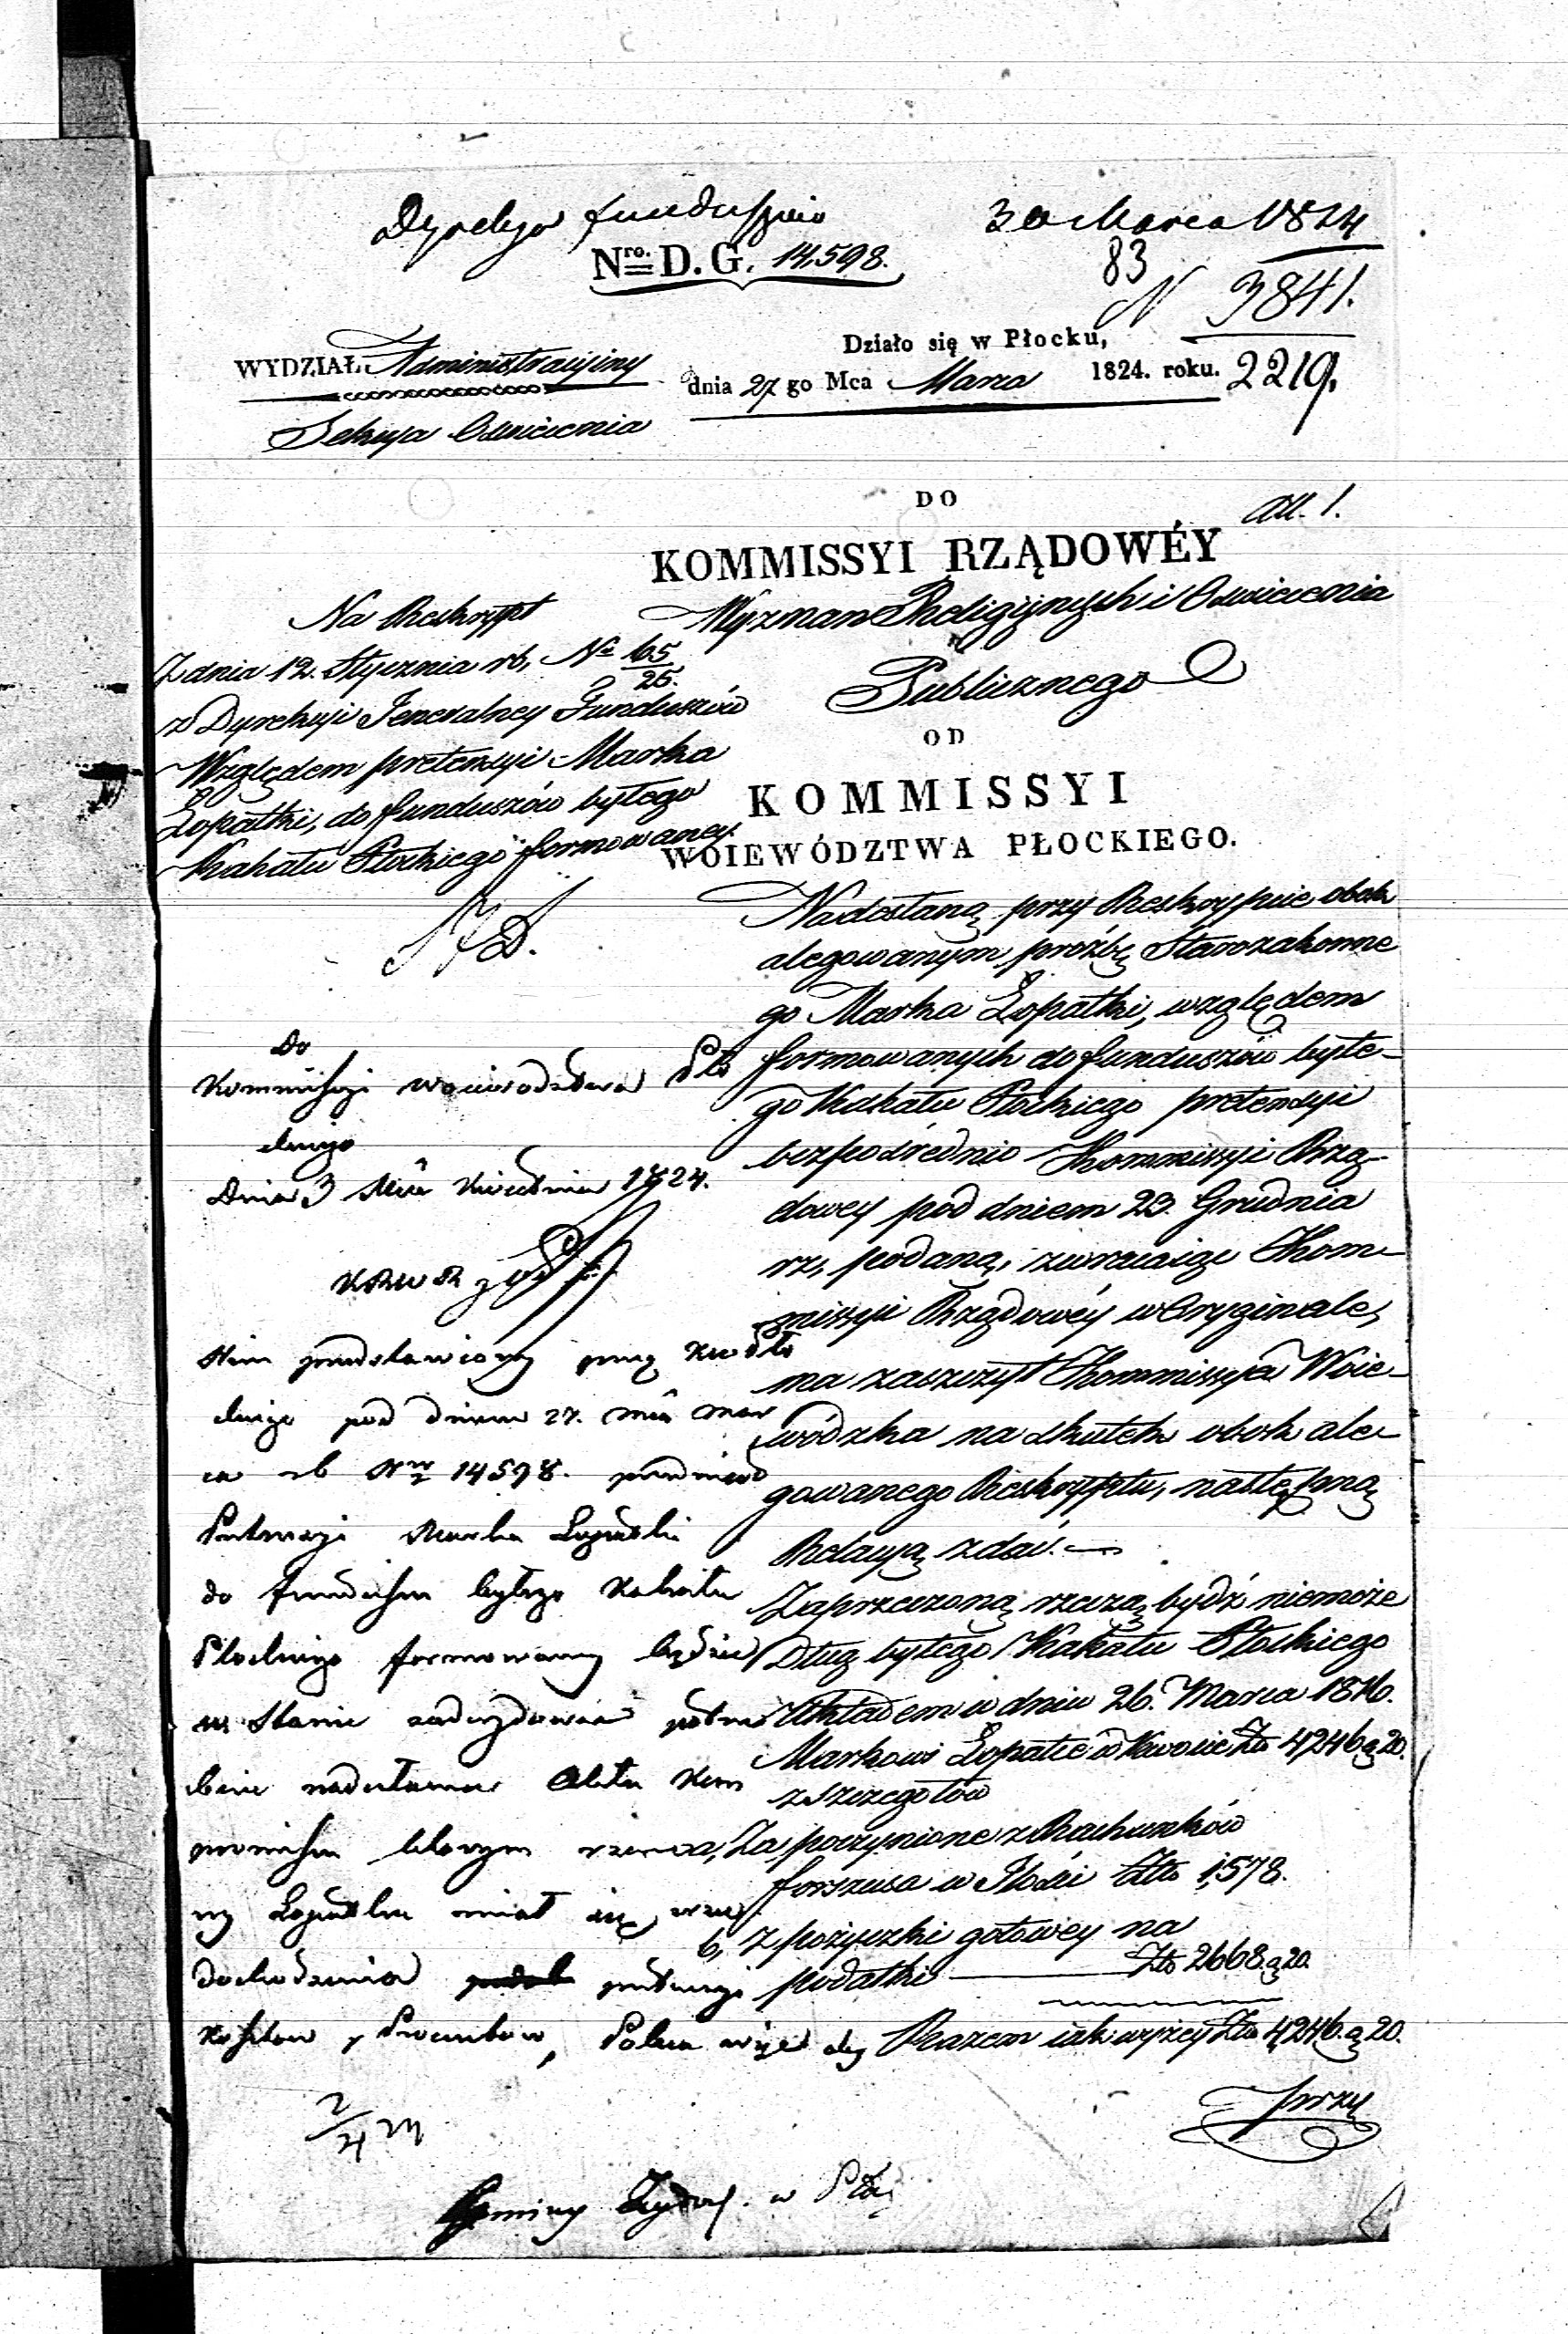 Dyrekcja funduszów
30 Marca 1824
Nro. D. G. 14,598.
83
N 3841.
2219.
WYDZIAŁ Administracyiny
Sekcya Oświecenia
Działo się w Płocku,
dnia 27 go Mca Marca 1824. roku.
All. 1.
DO
KOMMISSYI RZĄDOWÉY
Wyznan Religiynych i Oświecenia
Publicznego
OD
KOMMISSYI
WOIEWÓDZTWA PŁOCKIEGO.
Na Reskrypt
Z dnia 12. Stycznia rb, No 65/25.
z Dyrekcyi Jeneralney Funduszów
Względem pretensyi Marka
Łopatki, do funduszów byłego
Kahału Płockiego formowaney.
Nadesłaną przy Reskrypcie obok
alegowanym, próźbę Starozakonne
go Marka Łopatki, względem
formowanych do funduszów byłe-
go Kahału Płockiego pretensyi
bezpośrednio Kommissyi Rzą-
dowey pod dniem 23. Grudnia
rz, podaną, zwracaiąc Kom-
missyi Rządowéy w Oryginale,
ma zaszczyt Kommissya Woie-
wódzka na skutek obok ale-
gowanego Reskryptu, następną
Relacyą zdać. —
Zaprzeczoną rzeczą bydź niemoże
Dług byłego Kahału Płockiego
Układem w dniu 26. Marca 1816.
Markowi Łopatce w kwocie Zło 4246 g 20.
z szczegółów
a, Za poczynione z Rachunków
forszusa w Ilości Złło 1,578.
b, Z pożyczki gotowey na
podatki — Zło 2668. g 20.
Razem iak wyżey Zło 4,246. g 20.
przy
Do
Kommissyi Woiewodztwa Pło
ckiego
Dnia 3 Mca Kwietnia 1824.
Nim przedstawiony przez KWPło
ckiego pod dniem 27. mca Mar
ca rb Nro 14598. przedmiot
Pretensyi Marka Łopatki
do funduszu byłego Kahału
Płockiego formowaney będzie
w stanie
nadesłania Aktu Kom
promissu którym
ny Łopatka miał się
dochodzenia pretensyi
kosztow y Procentow, Poleca więc aby
Gminy Żydow. w Pło